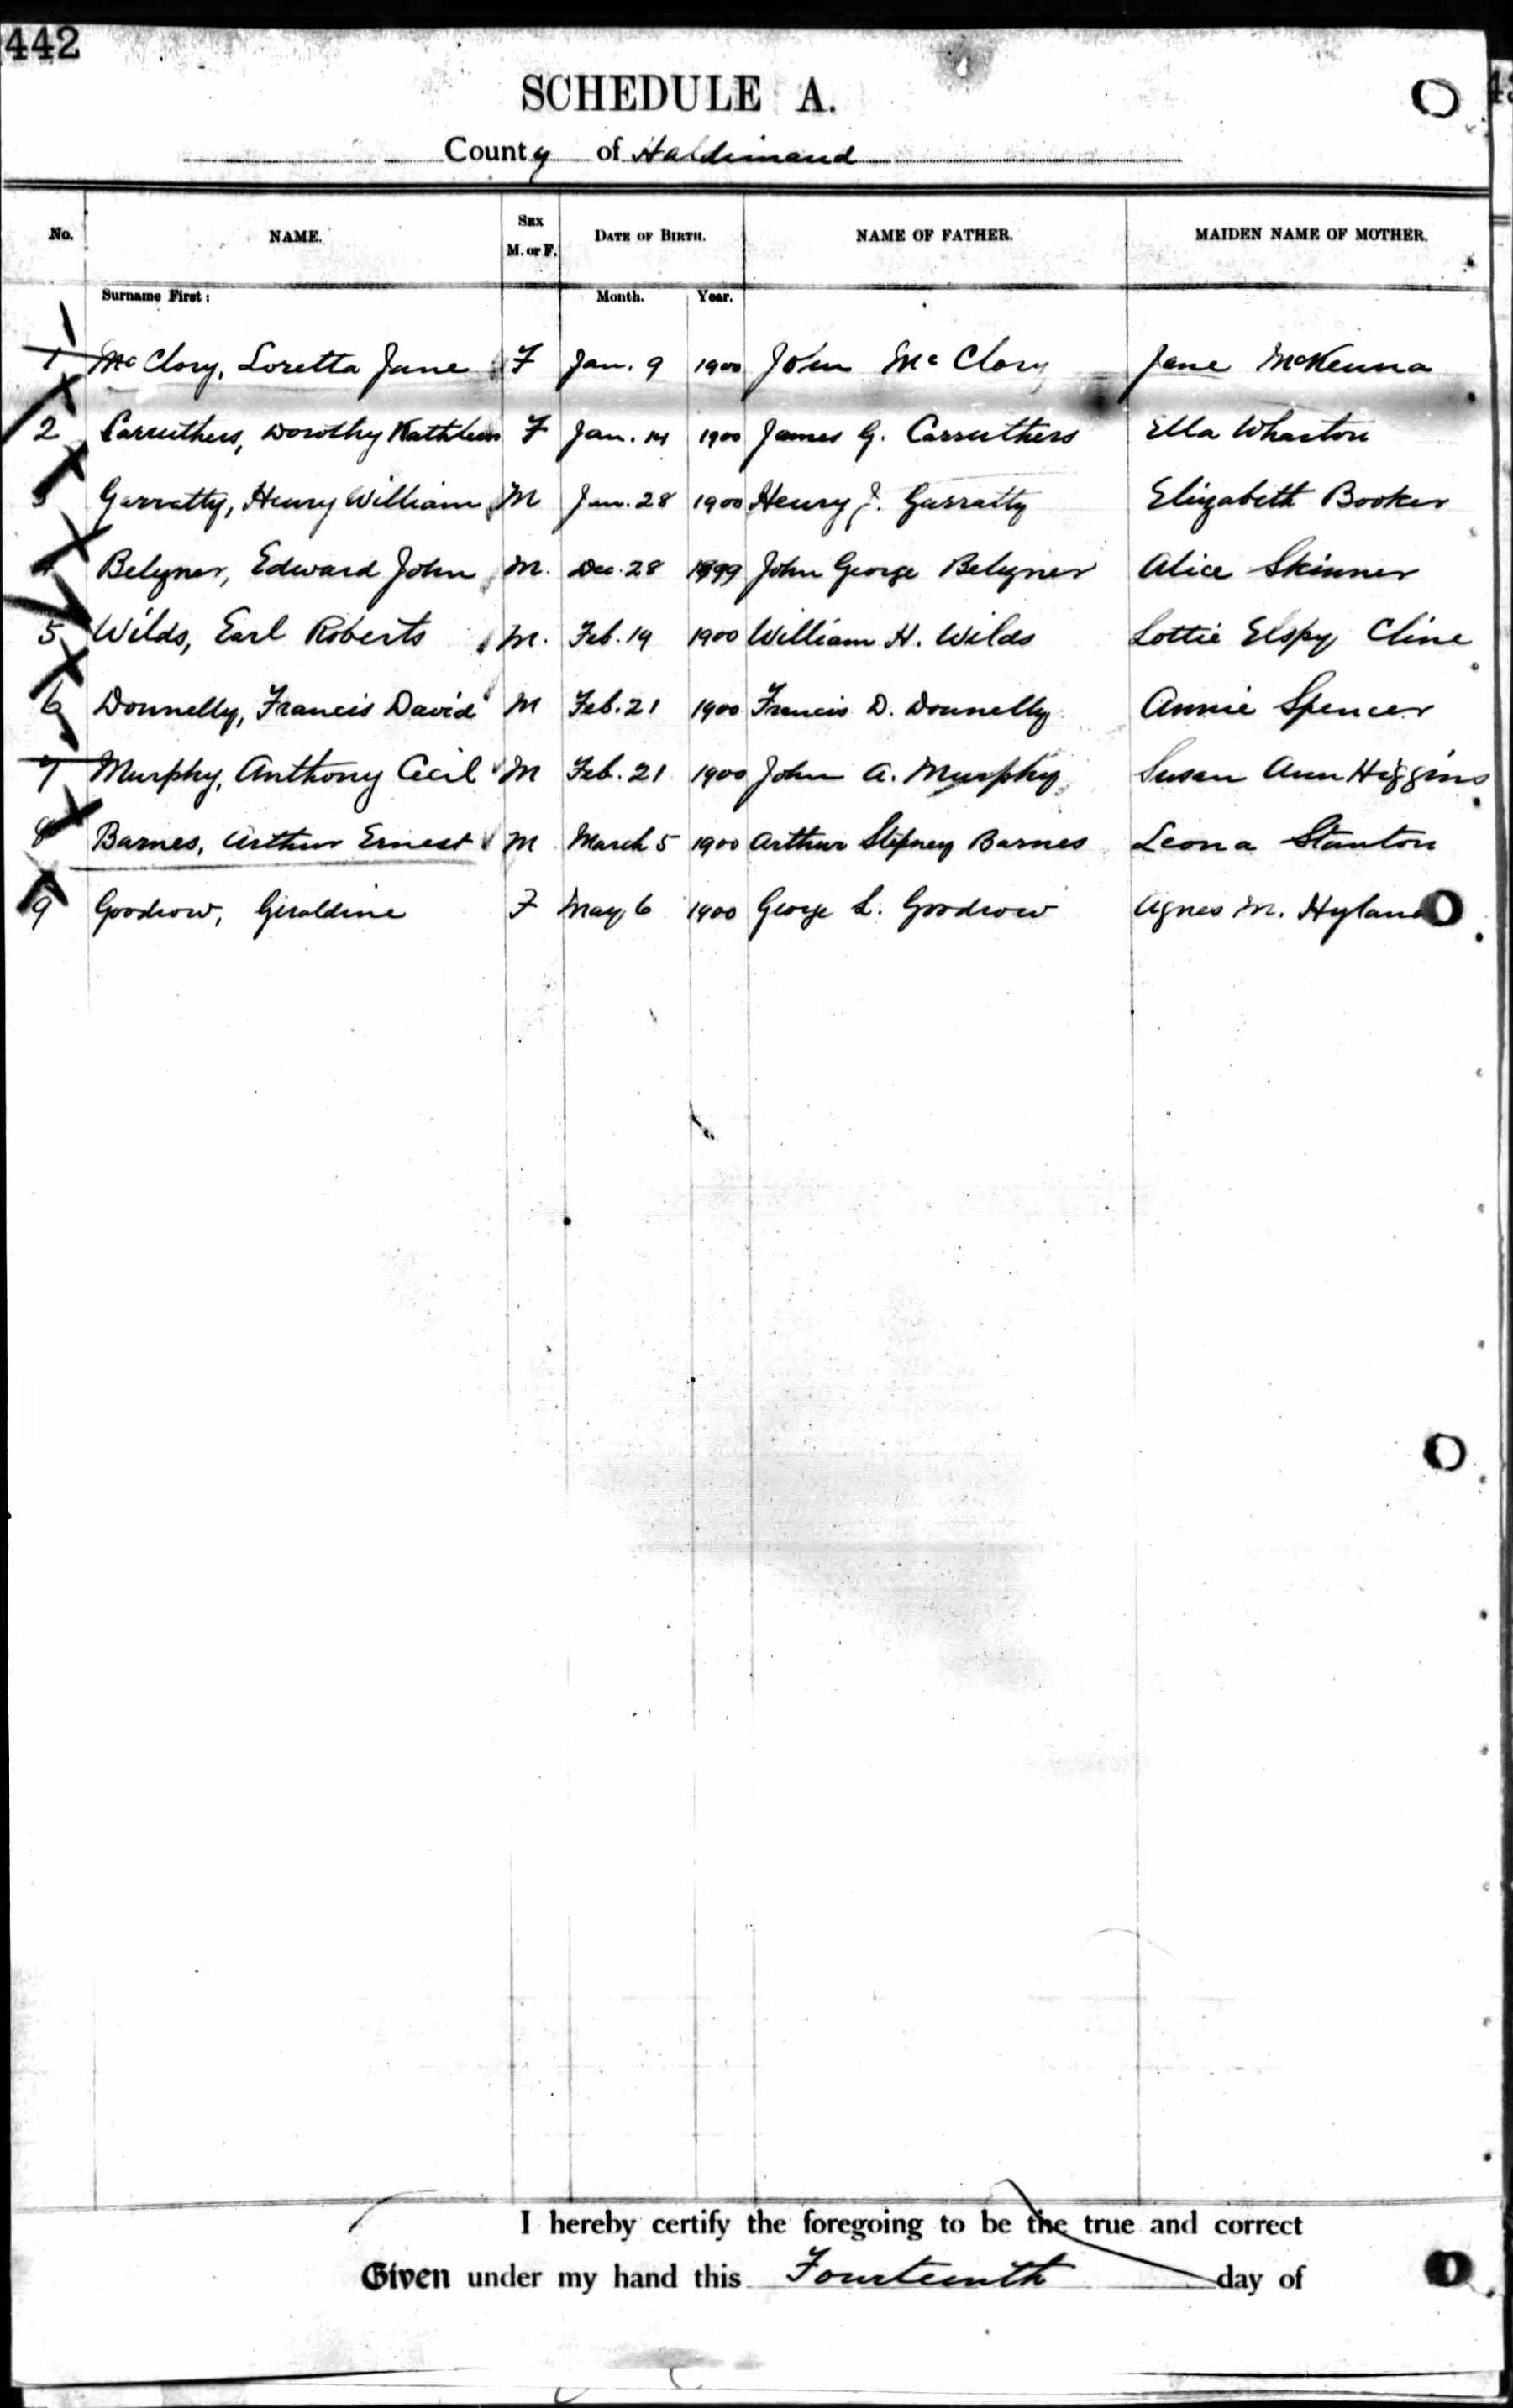 442
SCHEDULE A.
County of Haldimand
No. NAME. SEX M. or F. DATE OF BIRTH. NAME OF FATHER. MAIDEN NAME OF MOTHER.
Surname First: Month. Year.
1 McClory, Loretta Jane F Jan. 9 1900 John McClory Jane McKenna
2 Carruthers, Dorothy Kathleen F Jan. 14 1900 James G. Carruthers Ella Wharton
3 Garratty, Henry William M Jan. 28 1900 Henry J. Garratty Elizabeth Booker
4 Belyner, Edward John M. Dec. 28 1899 John George Belyner Alice Skinner
5 Wilds, Earl Roberts M. Feb. 19 1900 William H. Wilds Lottie Elspy Cline
6 Donnelly, Francis David M Feb. 21 1900 Francis D. Donnelly Annie Spencer
7 Murphy, Anthony Cecil M Feb. 21 1900 John A. Murphy Susan Ann Higgins
8 Barnes, Arthur Ernest M March 5 1900 Arthur Stepney Barnes Leona Stanton
9 Goodrow, Geraldine F May 6 1900 George L. Goodrow Agnes M. Hyland
I hereby certify the foregoing to be the true and correct
Given under my hand this Fourteenth day of